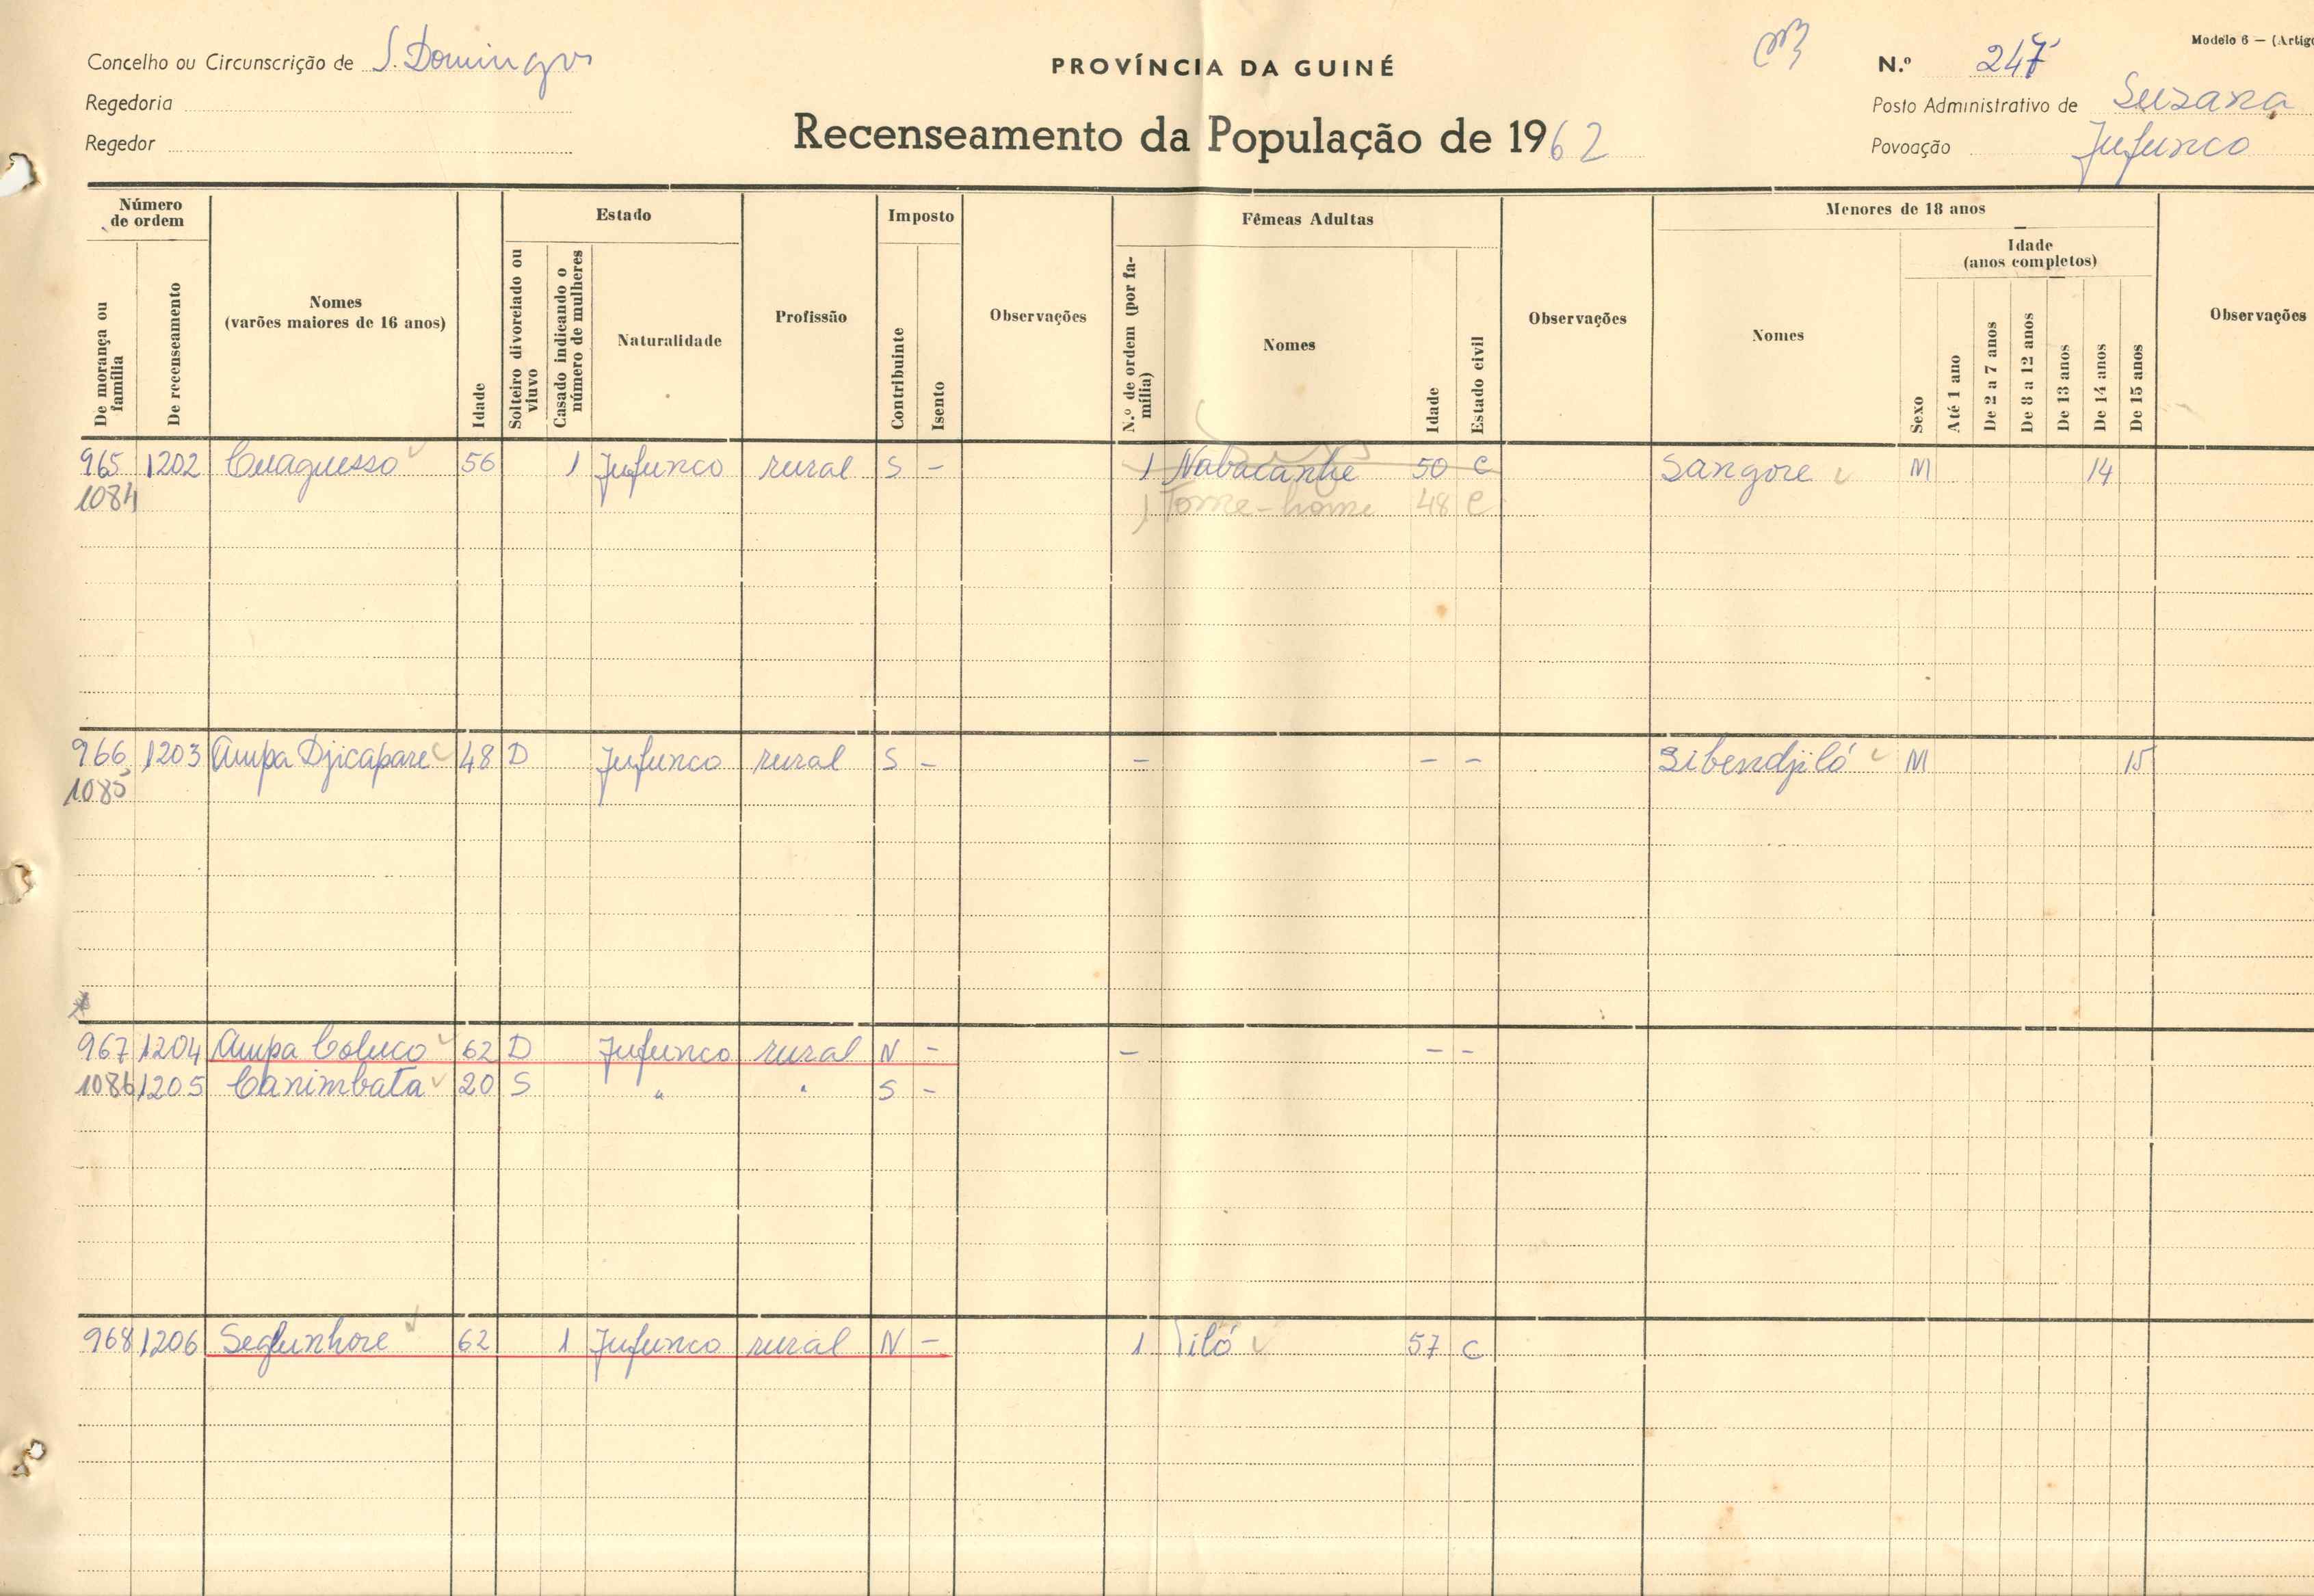 Modelo 6 — (Artig
Concelho ou Circunscrição de S. Domingos
PROVÍNCIA DA GUINÉ
N.º 247
Regedoria
Posto Administrativo de Suzana
Regedor
Recenseamento da População de 1962
Povoação Jufunco
Número de ordem
De morança ou família
De recenseamento
Nomes
(varões maiores de 16 anos)
Idade
Estado
Solteiro divorciado ou viuvo
Casado indicando o número de mulheres
Naturalidade
Profissão
Imposto
Contribuinte
Isento
Observações
Fêmeas Adultas
N.º de ordem (por família)
Nomes
Idade
Estado civil
Observações
Menores de 18 anos
Nomes
Sexo
Idade
(anos completos)
Até 1 ano
De 2 a 7 anos
De 8 a 12 anos
De 13 anos
De 14 anos
De 15 anos
Observações
965 1202 Cuaguesso 56 1 Jufunco rural S – 1 Nabacanhe 50 C Sangore M 14
1084 1 Tome-home 48 C
966 1203 Ampa Djicapare 48 D Jufunco rural S – – – – Sibendjiló M 15
1085
967 1204 Ampa Coluco 62 D Jufunco rural N – – – –
1086 1205 Canimbata 20 S " " S –
968 1206 Segunhore 62 1 Jufunco rural N – 1 57 C